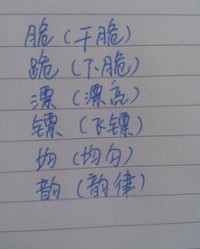 脆(干脆)
跪(下脆)
漂(漂亮)
镖(飞镖)
均(均匀)
韵(韵律)